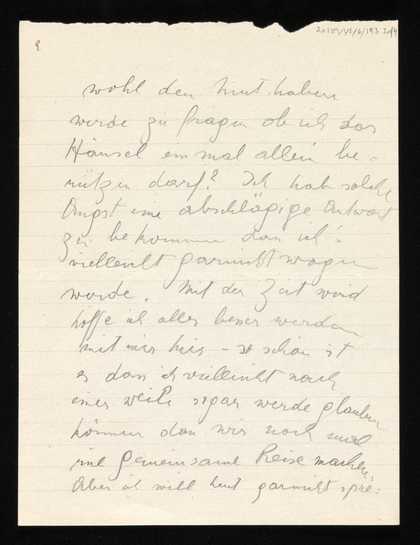 wohl den Mut haben
werde zu fragen ob ich das
Häusel einmal allein be-
nützen darf? Ich hab solche
Angst eine abschlägige Antwort
zu bekommen dass ich's
vielleicht garnicht wagen
werde. Mit der Zeit wird
hoffe ich alles besser werden
mit mir hier – so schön ist
es dass ich vielleicht nach
einer Weile sogar werde glauben
können dass wir noch mal
eine gemeinsame Reise machen.
Aber ich will heut garnicht spre-